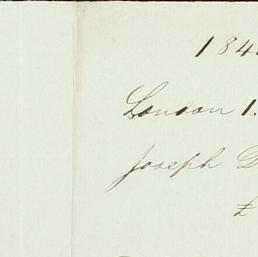 184
London 1.
Joseph D
£